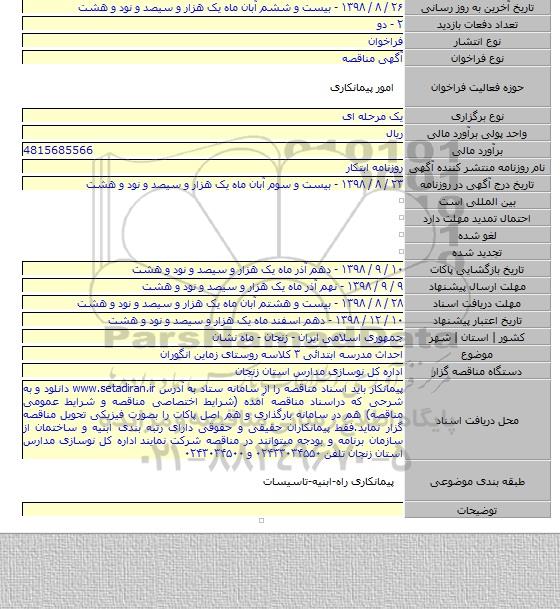 تاریخ آخرین به روز رسانی ۲۶ / ۸ / ۱۳۹۸ - بیست و ششم آبان ماه یک هزار و سیصد و نود و هشت
تعداد دفعات بازدید ۲ - دو
نوع انتشار فراخوان
نوع فراخوان آگهی مناقصه
حوزه فعالیت فراخوان امور پیمانکاری
نوع برگزاری یک مرحله ای
واحد پولی برآورد مالی ریال
برآورد مالی 4815685566
نام روزنامه منتشر کننده آگهی روزنامه ابتکار
تاریخ درج آگهی در روزنامه ۲۳ / ۸ / ۱۳۹۸ - بیست و سوم آبان ماه یک هزار و سیصد و نود و هشت
بین المللی است
احتمال تمدید مهلت دارد
لغو شده
تجدید شده
تاریخ بازگشایی پاکات ۱۰ / ۹ / ۱۳۹۸ - دهم آذر ماه یک هزار و سیصد و نود و هشت
مهلت ارسال پیشنهاد ۹ / ۹ / ۱۳۹۸ - نهم آذر ماه یک هزار و سیصد و نود و هشت
مهلت دریافت اسناد ۲۸ / ۸ / ۱۳۹۸ - بیست و هشتم آبان ماه یک هزار و سیصد و نود و هشت
تاریخ اعتبار پیشنهاد ۱۰ / ۱۲ / ۱۳۹۸ - دهم اسفند ماه یک هزار و سیصد و نود و هشت
کشور | استان | شهر جمهوری اسلامی ایران - زنجان - ماه نشان
موضوع احداث مدرسه ابتدائی ۳ کلاسه روستای زماین انگوران
دستگاه مناقصه گزار اداره کل نوسازی مدارس استان زنجان
پیمانکار باید اسناد مناقصه را از سامانه ستاد به آدرس www.setadiran.ir دانلود و به
شرحی که دراسناد مناقصه آمده (شرایط اختصاصی مناقصه و شرایط عمومی
مناقصه) هم در سامانه بارگذاری و هم اصل پاکات را بصورت فیزیکی تحویل مناقصه
محل دریافت اسناد گزار نماید.فقط پیمانکاران حقیقی و حقوقی دارای رتبه بندی ابنیه و ساختمان از
سازمان برنامه و بودجه میتوانند در مناقصه شرکت نمایند اداره کل نوسازی مدارس
استان زنجان تلفن ۰۲۴۳۳۰۳۴۵۵۰ و ۰۲۴۳۳۰۳۴۵۰۰
طبقه بندی موضوعی پیمانکاری راه-ابنیه-تاسیسات
توضیحات
ParsNamadData